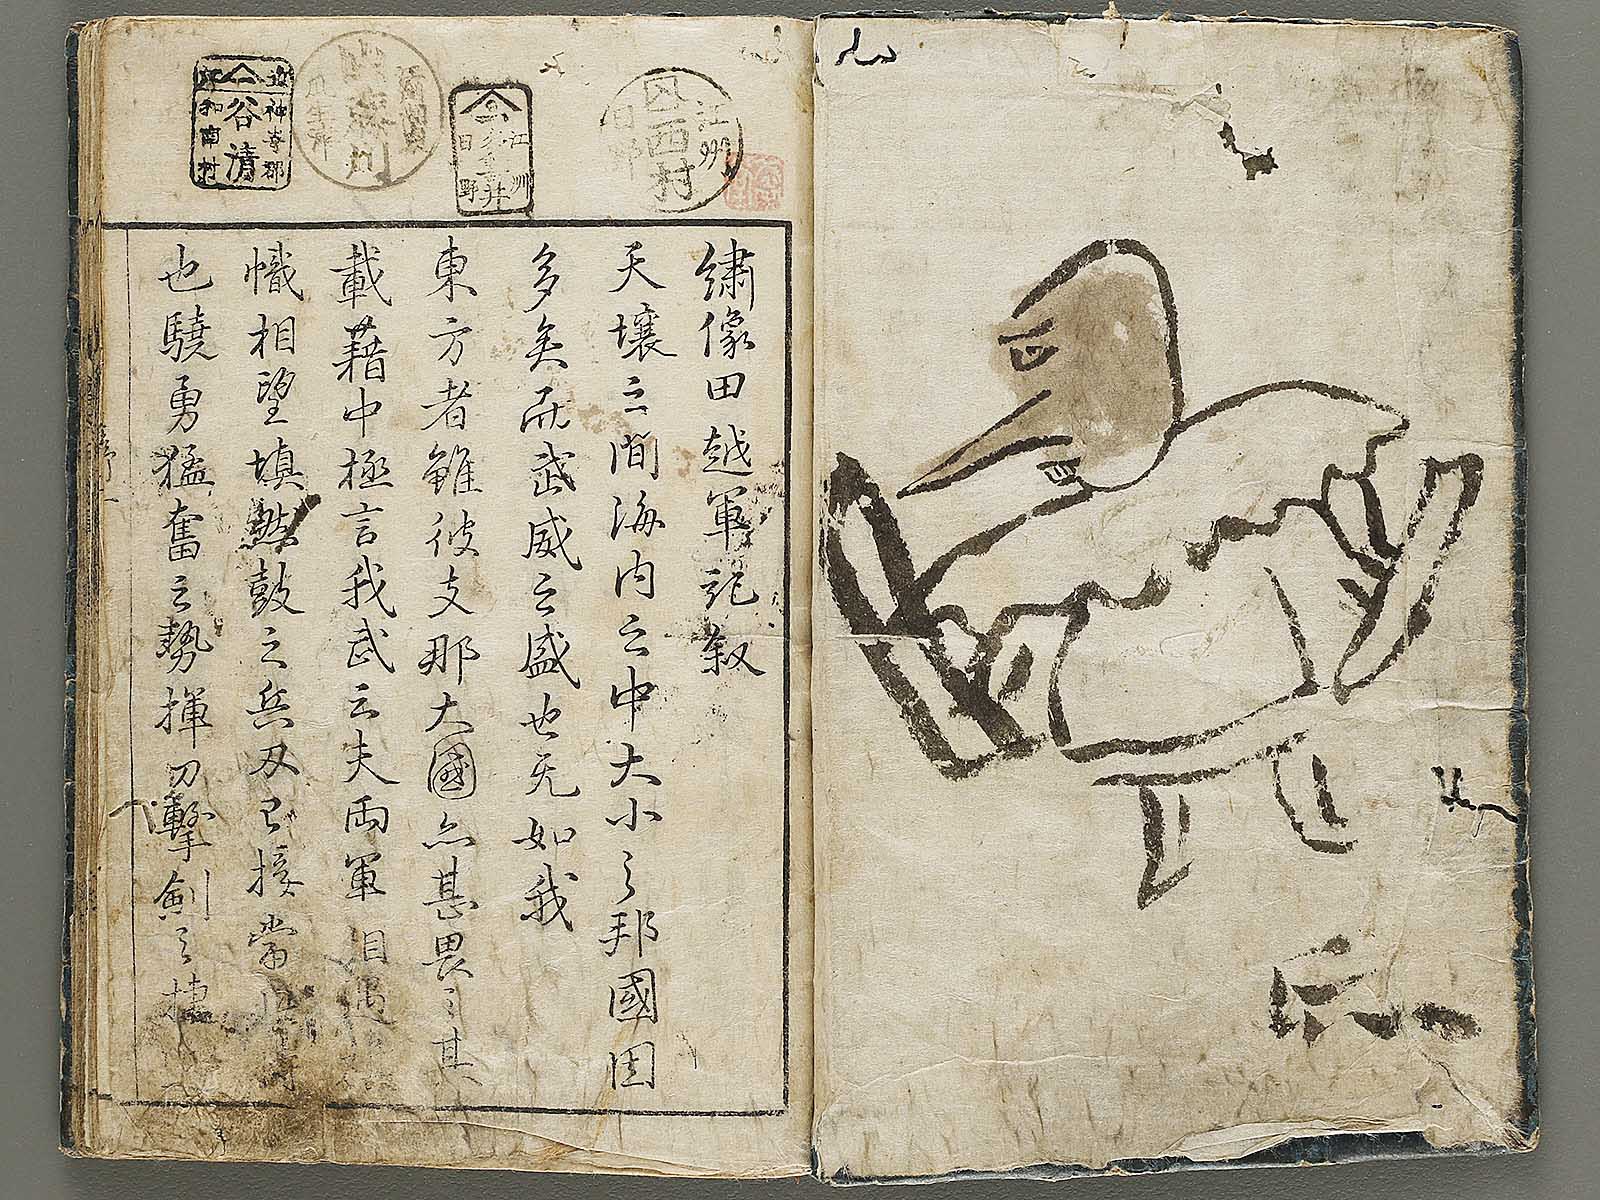 繍像甲越軍記叙
天壌之間海内之中大小之邦國固
多矣而武威之盛也无如我
東方者雖彼支那大國亦甚畏之其
載藉中極言我武云夫両軍相遇
幟相望填然鼓之兵刃已接當
也驍勇猛奮之勢揮刀撃劍之捷
江州
西村
日野
江州
井
日野
神崎郡
谷清
和南村